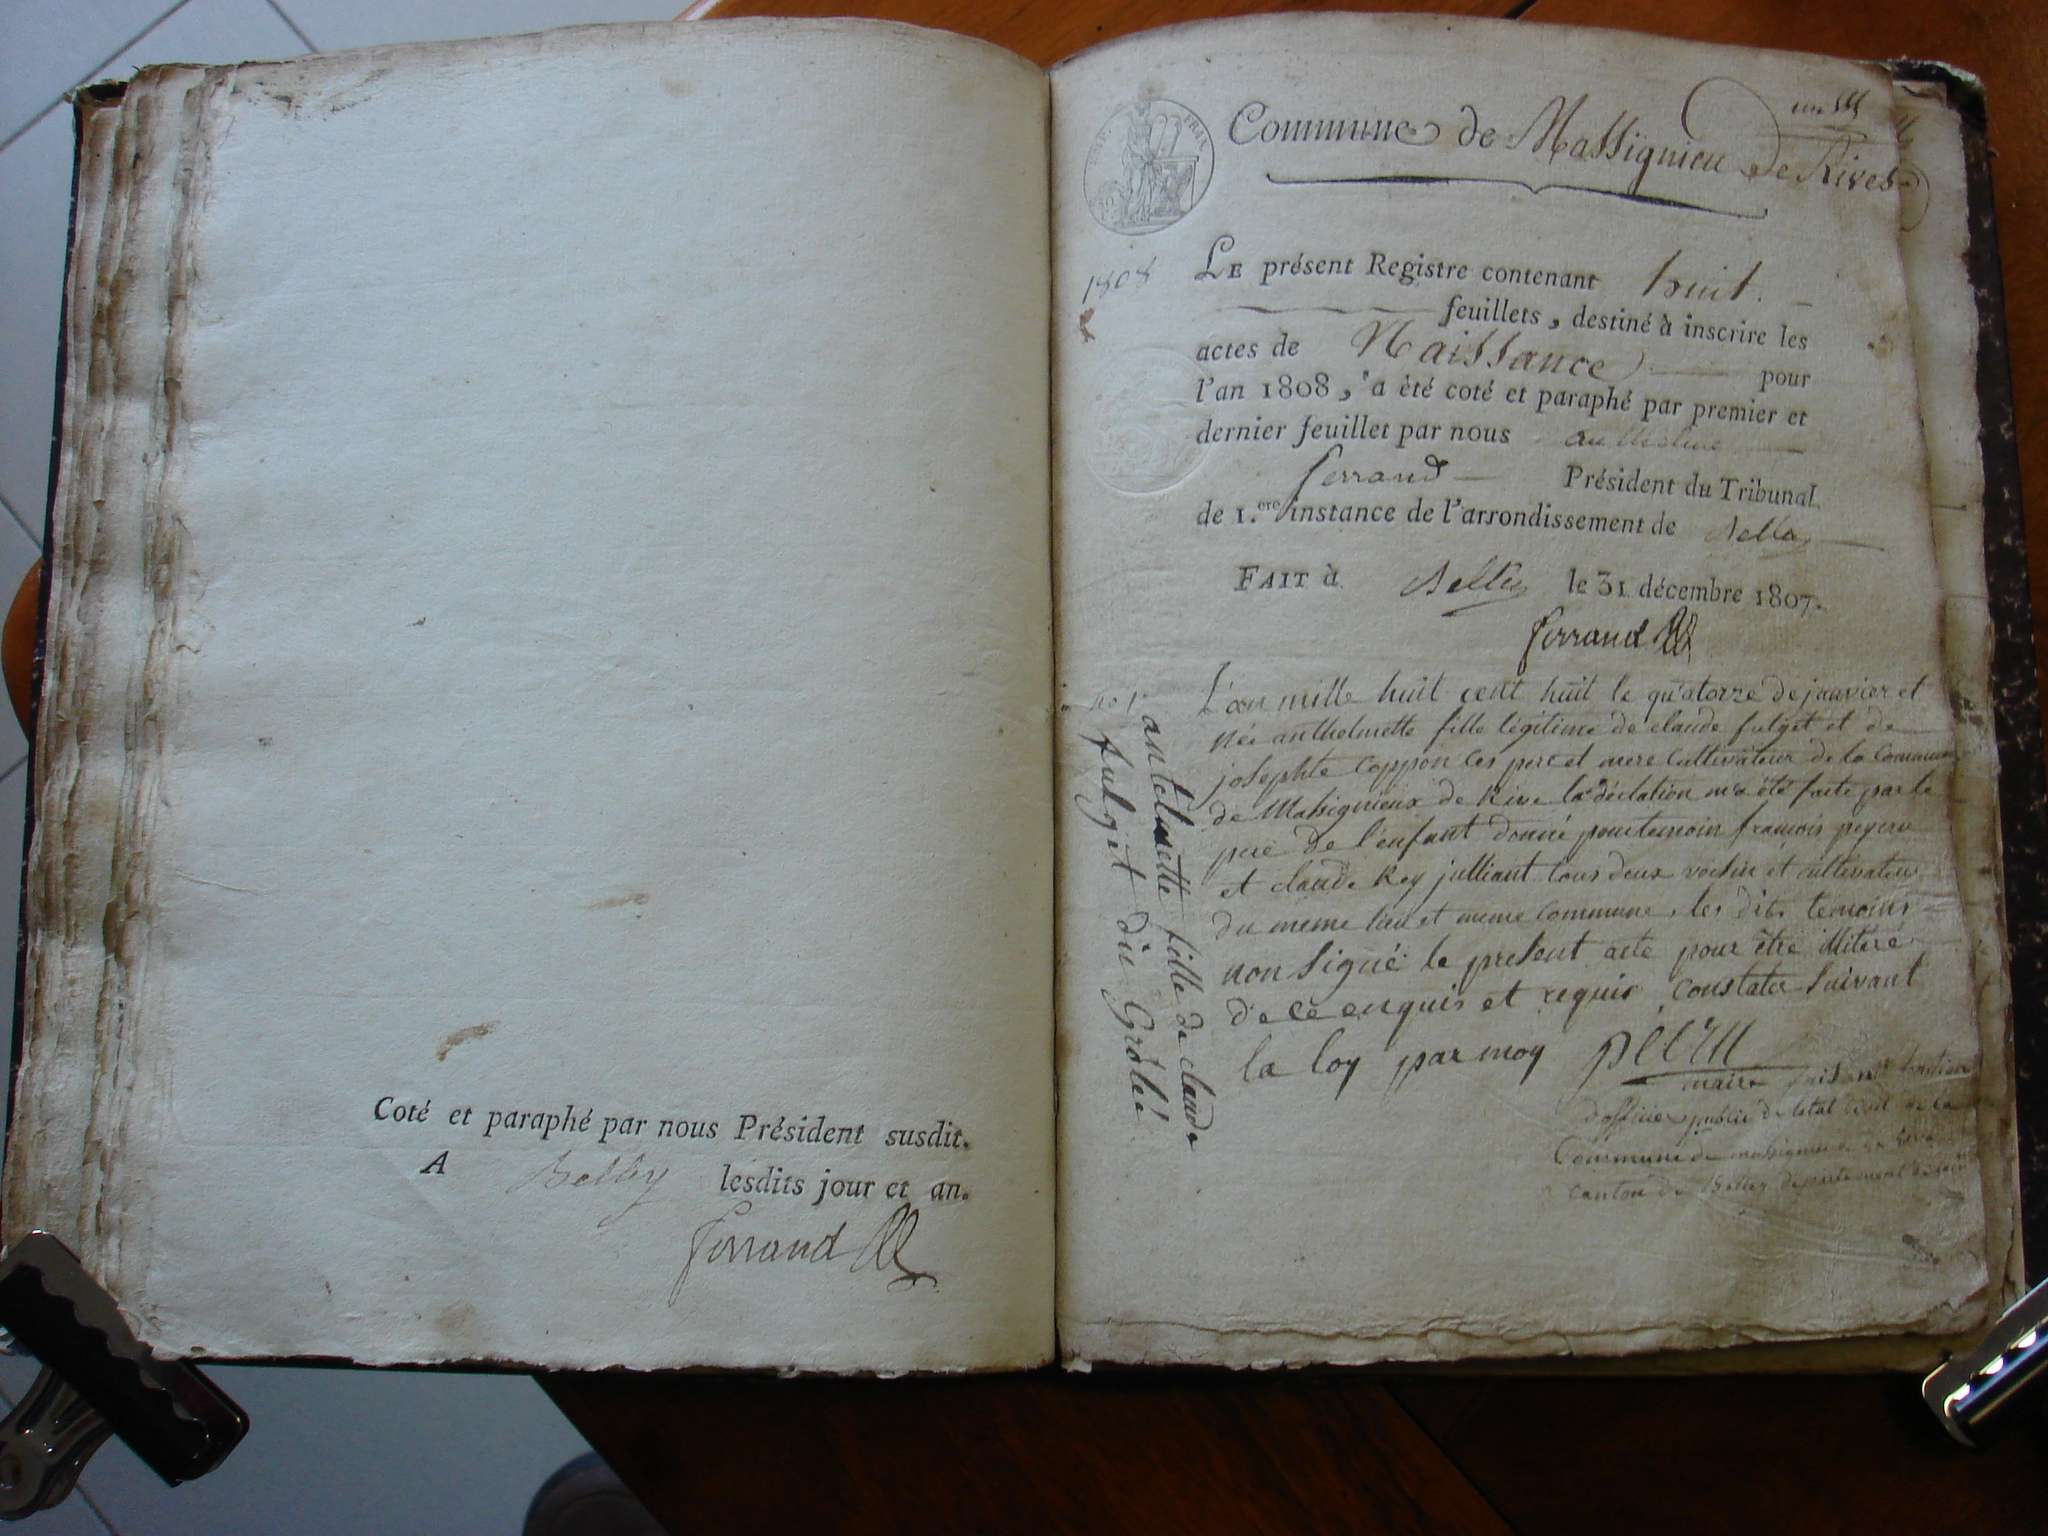 Coté et paraphé par nous Président susdit.
A Belley lesdits jour et an.
ferrand
Commune de Massignieu de Rives
1808
LE présent Registre contenant huit
feuillets, destiné à inscrire les
actes de Naissance pour
l'an 1808, a été coté et paraphé par premier et
dernier feuillet par nous anthelme
ferrand Président du Tribunal
de 1.ere instance de l'arrondissement de Belley
FAIT à Belley le 31 décembre 1807.
ferrand
no 1er
antelmette fille de claude
fulget dit Grolée
L'an mille huit cent huit le quatorze de janvier et
née anthelmette fille légitime de claude fulget et de
josephte coppon ces pere et mere cultivateur de la Commune
de Massignieux de Rive la déclation m'a été faite par le
pere de l'enfant donné pour temoin françois peyeru
et claude Rey julliant tous deux voisin et cultivateur
du meme lieu et meme commune, les dits temoins
non signé le present acte pour être illiteré
de ce enquis et requis, Constater suivant
la loy par moy peeru
maire faisant fonction
d'officier public de letat civil de la
Commune de massignieu de Rive
canton de Belley departement de lain